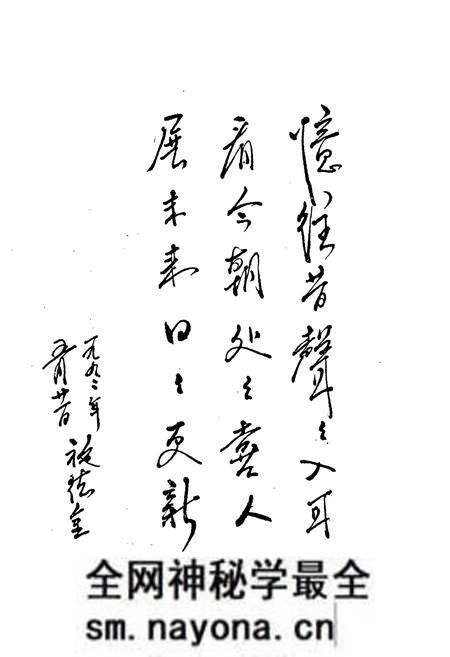 憶往昔聲々入耳
看今朝处々喜人
展未来日々更新
一九九二年
五月廿日
全网神秘学最全
sm.nayona.cn